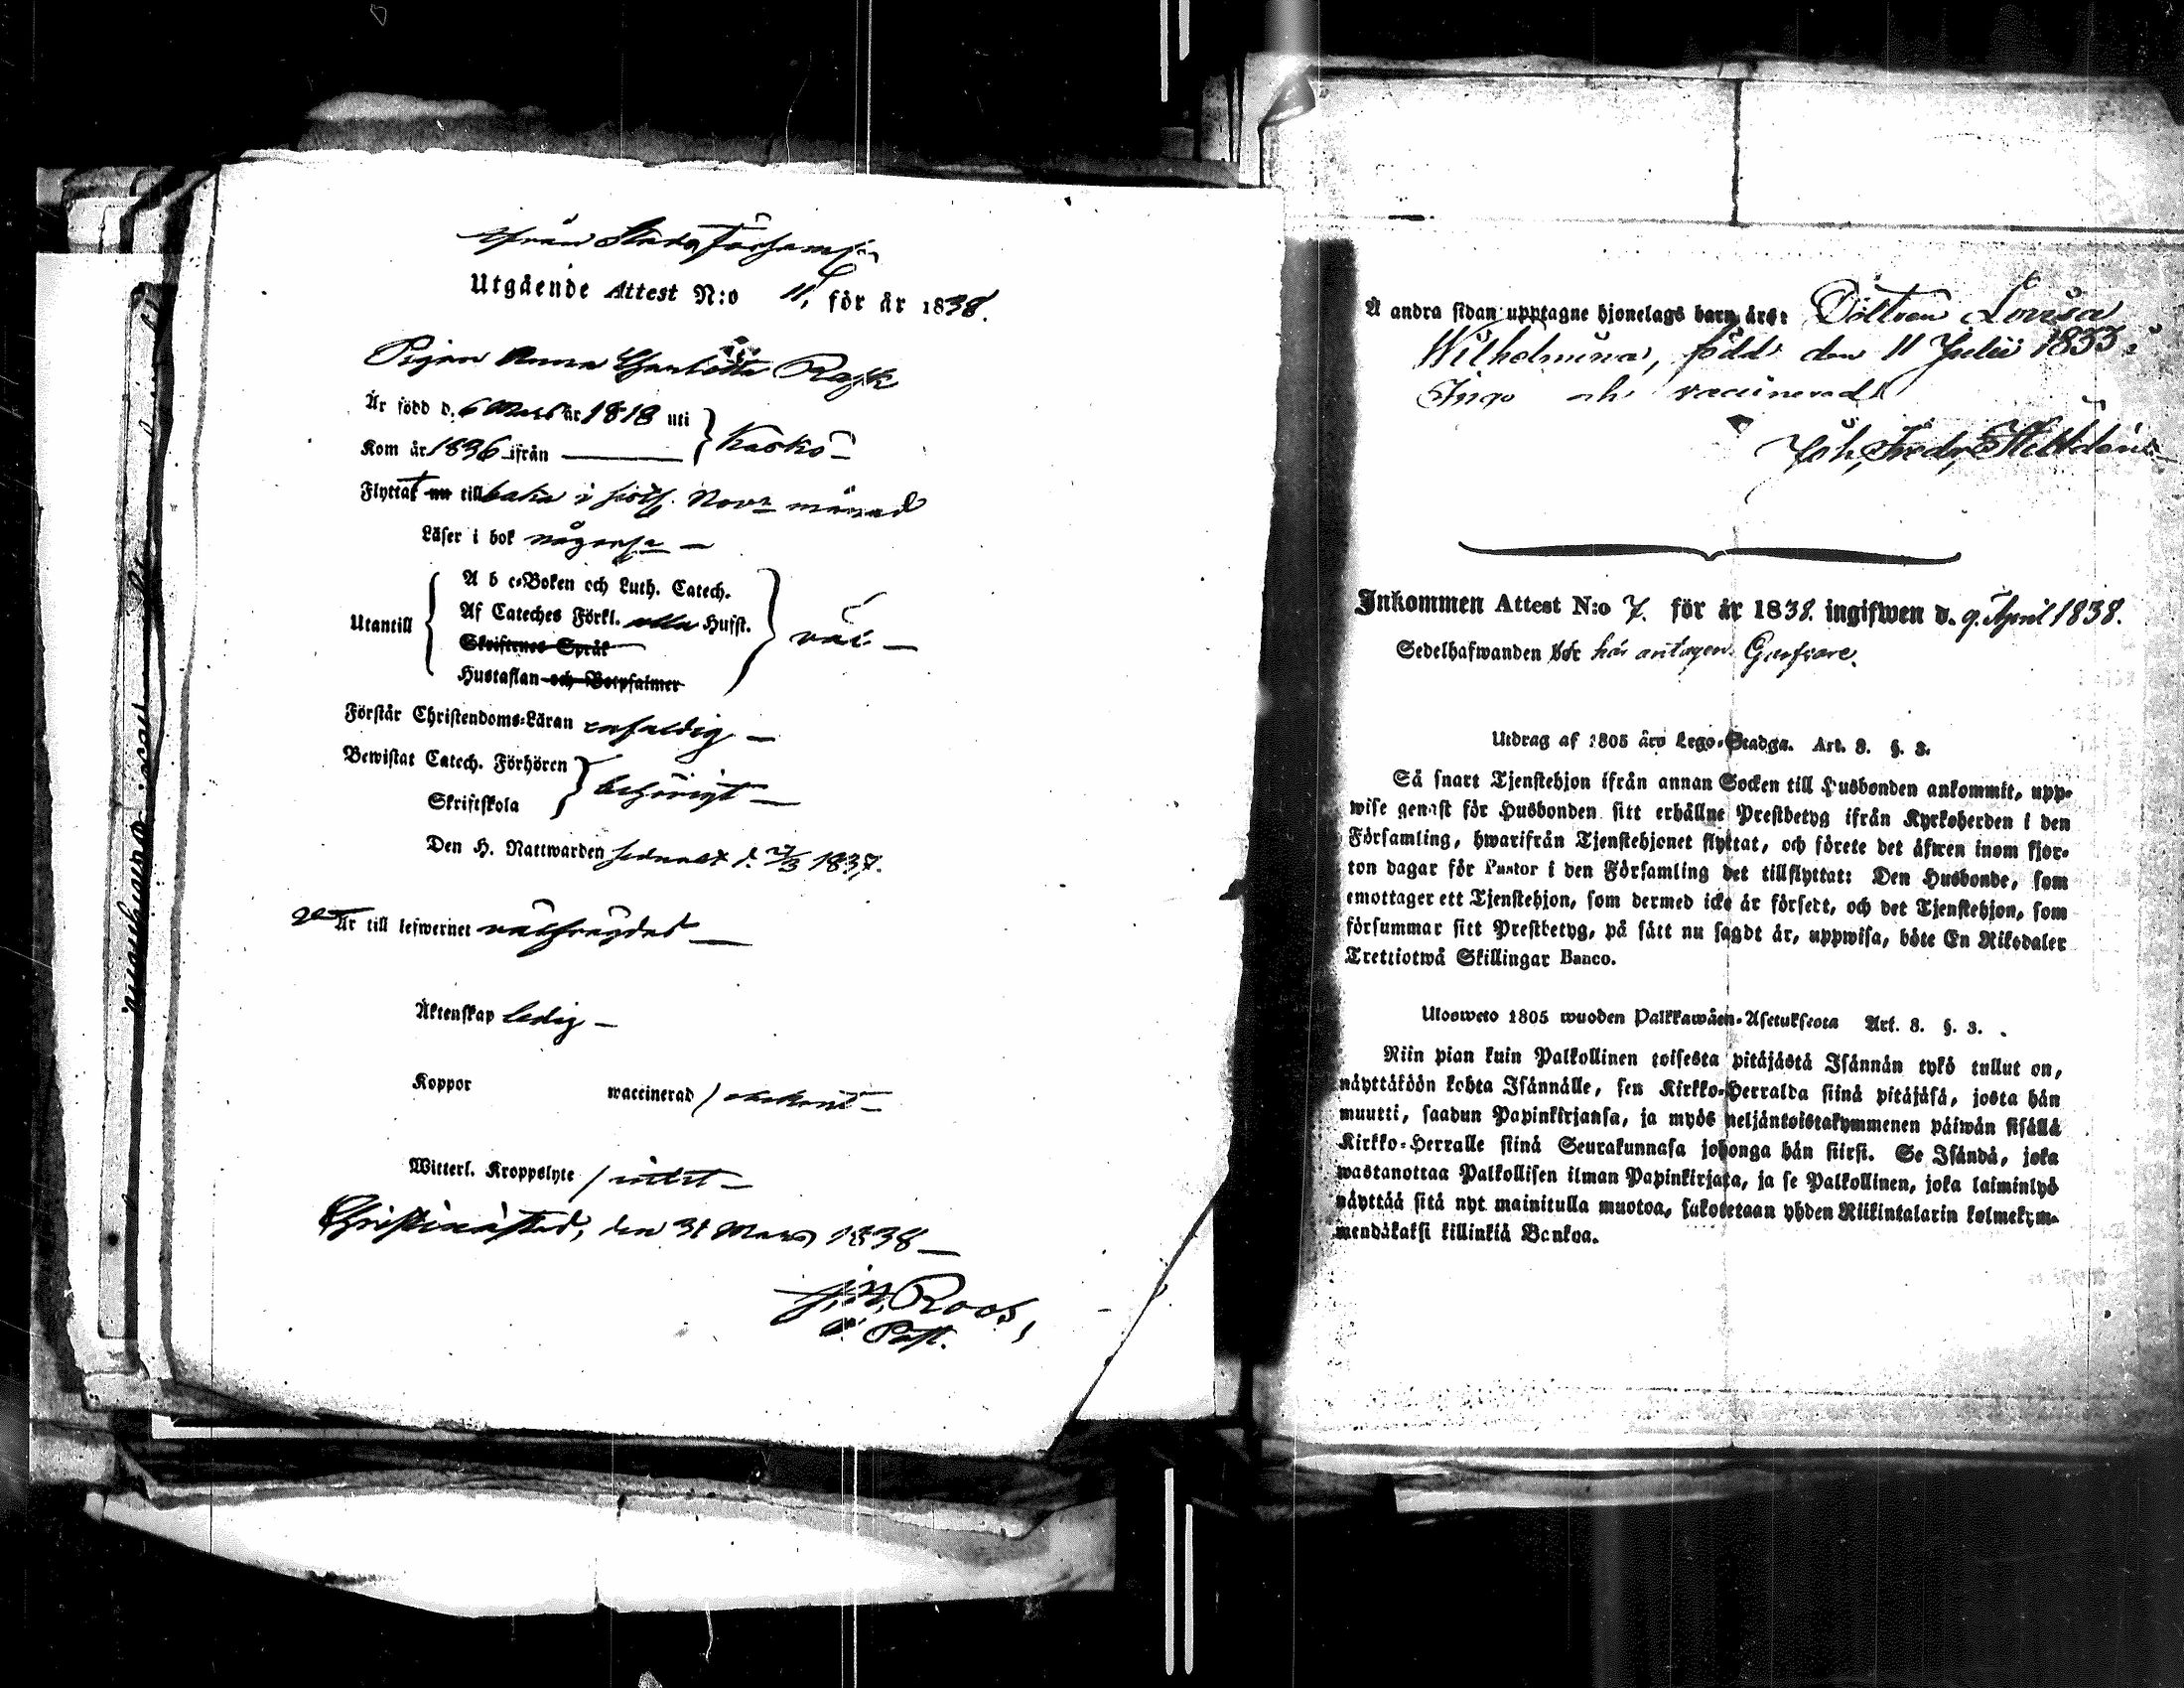 ifrån Stads Församl.
Utgående Attest N:o 11, för år 1838.
Pigan Anna Charlotta Rask
Är född d. 6 Mars år 1818 uti
Kom år 1836 ifrån
Kaskö
Flyttat nu tillbaka i sistl. Novr månad
Läser i bok någorl.
Utantill
A b c-Boken och Luth. Catech.
Af Cateches Förkl. Husst.
Skriftenes Språk
Hustaflan och Botpsalmer
väl
Förstår Christendoms-Läran enfaldig
Bewistat Catech. Förhören
Skriftskola
behörigt
Den H. Nattwarden sednast d. 27/3 1837.
Är till lefwernet välfrägdad
Äktenskap ledig
Koppor waccinerad
Witterl. Kroppslyte / intet
Christinæstad, den 31 Mars 1838
Roos,
Past.
Å andra sidan upptagne hjonelags barn äro: Dottren Lovisa
Wilhelmina, född den 11 Julii 1833,
och vaccinerad
Joh. Fredr.
Inkommen Attest N:o 7. för år 1838. ingifwen d. 9. April 1838.
Sedelhafwanden här antagen
Utdrag af 1805 års Lego-Stadga. Art. 8. §. 3.
Så snart Tjenstehjon ifrån annan Socken till Husbonden ankommit, upp-
wise genast för Husbonden sitt erhållne Prestbetyg ifrån Kyrkoherden i den
Församling, hwarifrån Tjenstehjonet flyttat, och förete det äfwen inom fjor-
ton dagar för Pastor i den Församling det tillflyttat: Den Husbonde, som
emottager ett Tjenstehjon, som dermed icke är försedt, och det Tjenstehjon, som
försummar sitt Prestbetyg, på sätt nu sagdt är, uppwisa, böte En Riksdaler
Trettiotwå Skillingar Banco.
Ulosweto 1805 wuoden Palkkawäen-Asetuksesta Art. 8. §. 3.
Niin pian kuin Palkollinen toisesta pitäjästä Isännän tykö tullut on,
näyttäköön kohta Isännälle, sen Kirkko-Herralda siinä pitäjäsä, josta hän
muutti, saadun Papinkirjansa, ja myös neljäntoistakymmenen päiwän sisällä
Kirkko-Herralle siinä Seurakunnasa johonga hän siirsi. Se Isändä, joka
wastanottaa Palkollisen ilman Papinkirjata, ja se Palkollinen, joka laiminlyö
näyttää sitä nyt mainitulla muotoa, sakotetaan yhden Riikintalarin kolmekym-
mendäkaksi killinkiä Bankoa.